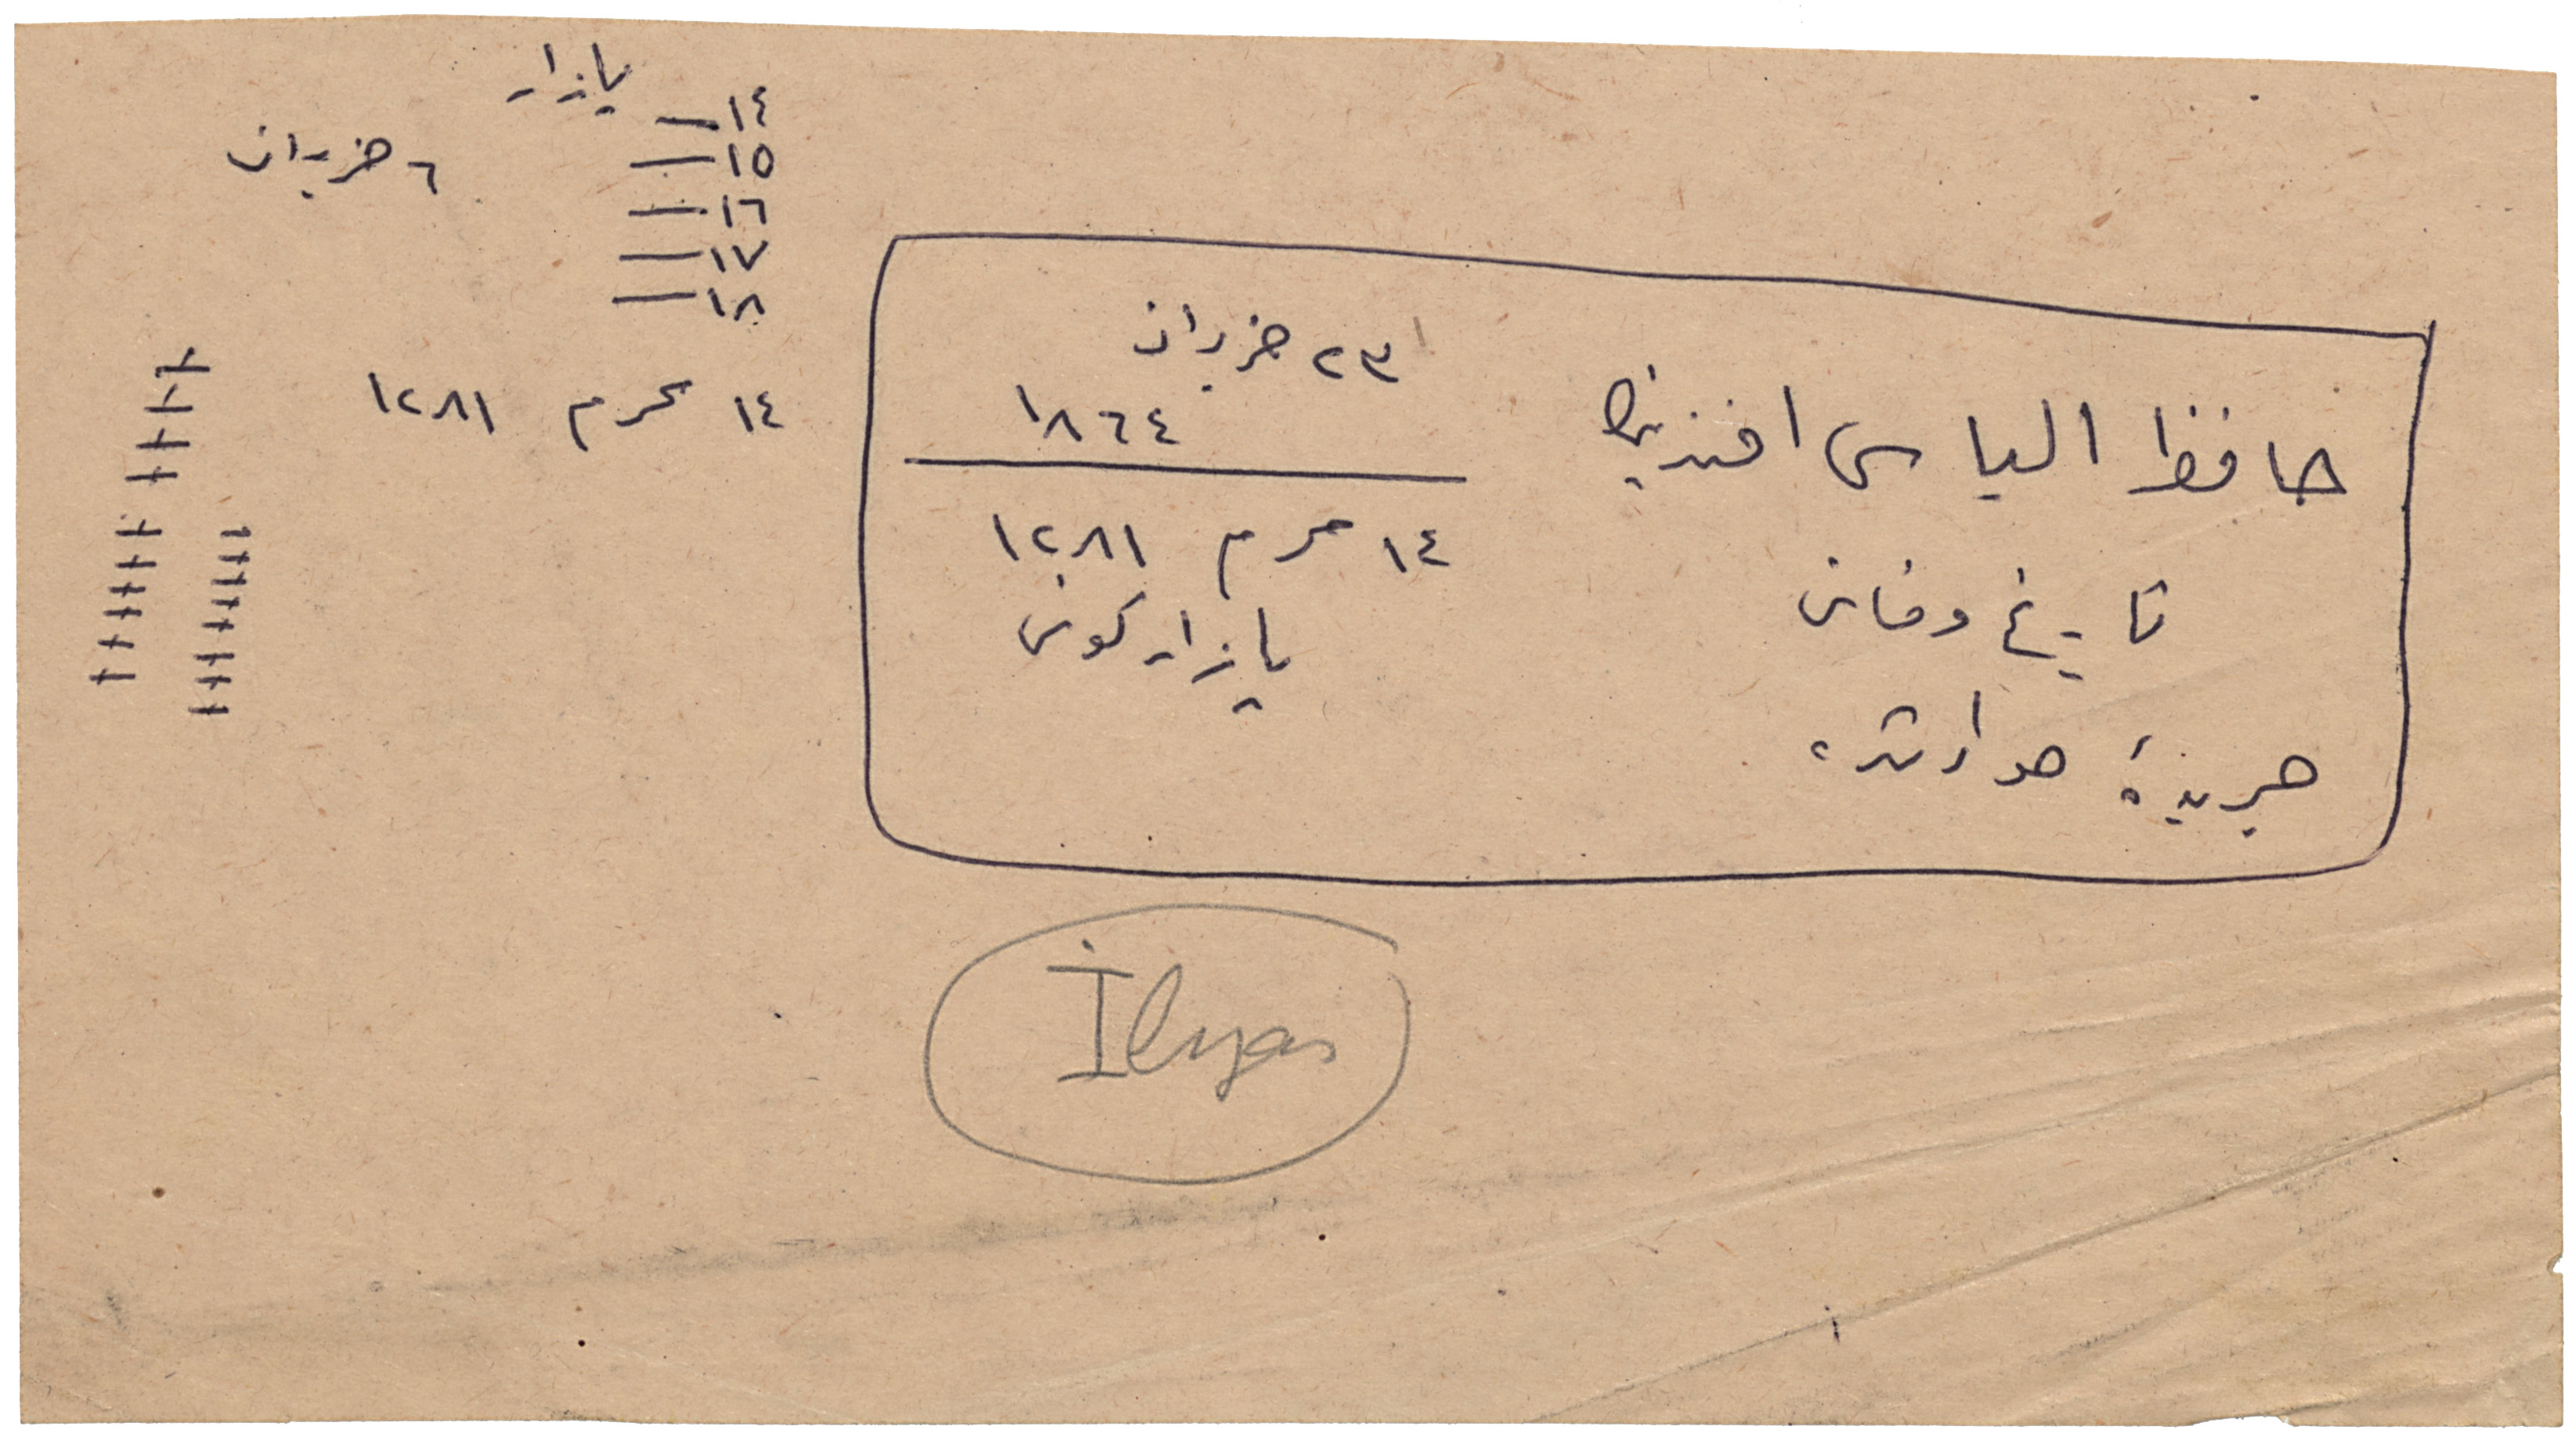 پازار
١٤ —
١٥ —
١٦ —
١٧ —
١٨ —
٦ حزيران
١٤ محرم ١٢٨١
حافظ الياس افندينك
تاريخ وفاتى
جريدۀ حوادثده
٢٣ حزيران
١٨٦٤
١٤ محرم ١٢٨١
پازار كونى
İlyas